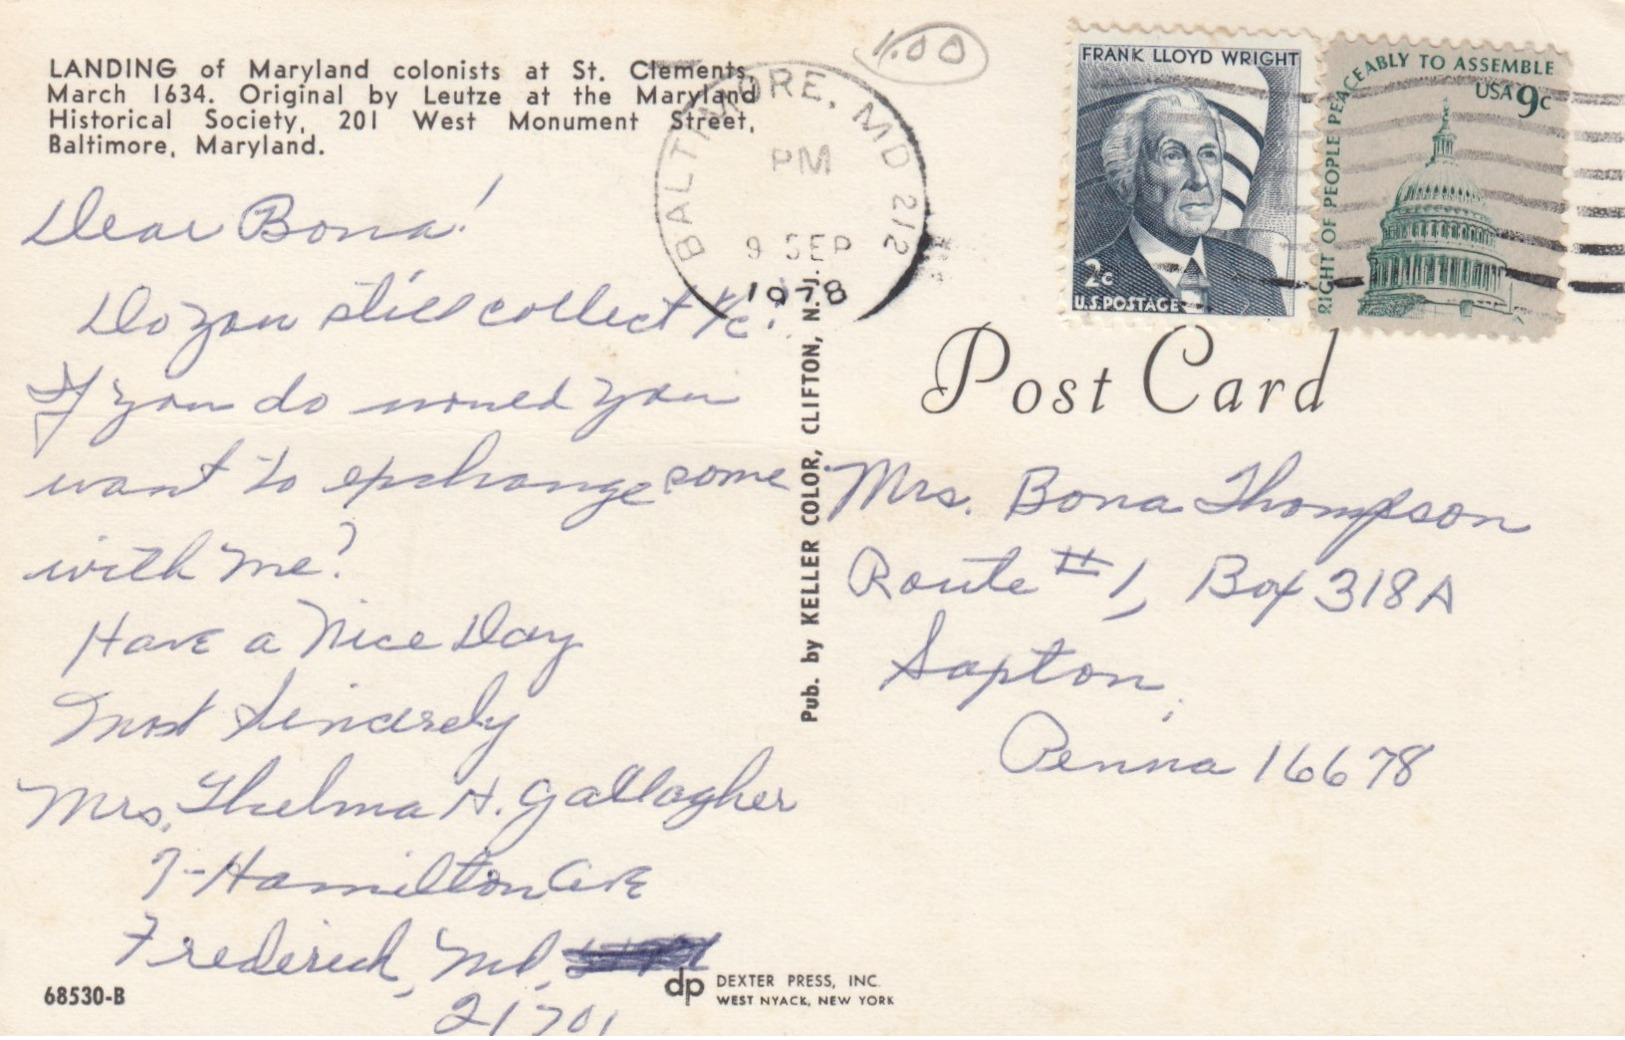 LANDING of Maryland colonists at St. Clements,
March 1634. Original by Leutze at the Maryland
Historical Society, 201 West Monument Street,
Baltimore, Maryland.
Dear Bona!
Do you still collect P/c?
If you do would you
want to exchange some
with me?
Have a Nice Day
Most Sincerely
Mrs. Thelma H. Gallagher
7-Hamilton Ave
Frederick, Md.
21701
68530-B
dp DEXTER PRESS, INC.
WEST NYACK, NEW YORK
Pub. by KELLER COLOR, CLIFTON, N. J.
1.00
BALTIMORE, MD 212
PM
9 SEP
1978
FRANK LLOYD WRIGHT
2c
U.S. POSTAGE
RIGHT OF PEOPLE PEACEABLY TO ASSEMBLE
USA 9c
Post Card
Mrs. Bona Thompson
Route #1, Box 318A
Saxton,
Penna 16678